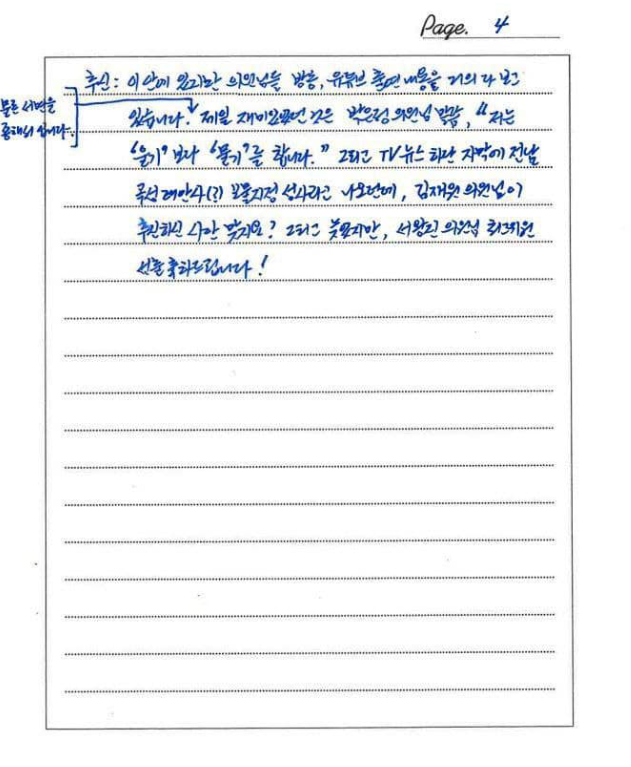 Page. 4
추신: 이 안에 있지만 의원님들 방송, 유튜브 출연 내용을 거의 다 보고
있습니다. 제일 재미있었던 것은 박은정 의원님 말씀, “저는
‘울기’ 보다 ‘물기’를 합니다.” 그리고 TV뉴스 하단 자막에 전남
곡성 태안사(?) 보물지정 성사라고 나오던데, 김재원 의원님이
추진하신 사안 맞지요? 그리고 늦었지만, 서왕진 의원님 최고위원
선출 축하드립니다!
물론 서면을
통해서 입니다.